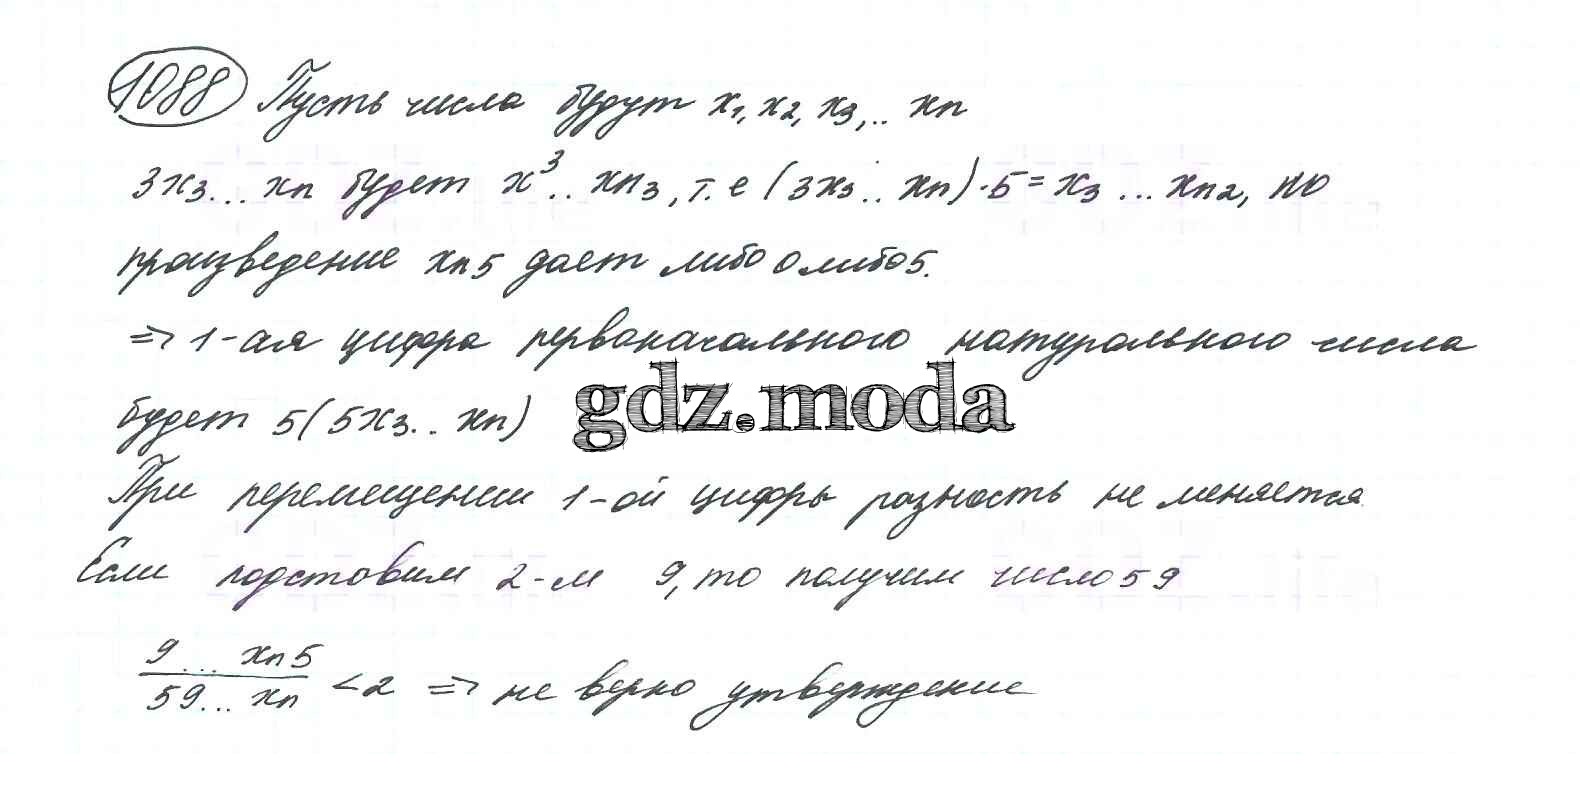 1088 Пусть числа будут x1, x2, x3,.. xn
3x3... xn будет x³.. xn3, т. е (3x3.. xn)·5=x3 ... xn2, но
произведение xn5 дает либо 0 либо 5.
=> 1-ая цифра первоначального натурального числа
будет 5(5x3.. xn)
gdz.moda
При перемещении 1-ой цифры разность не меняется.
Если подставим 2-м 9, то получим число 59
9... xn5 / 59... xn <2 => не верно утверждение